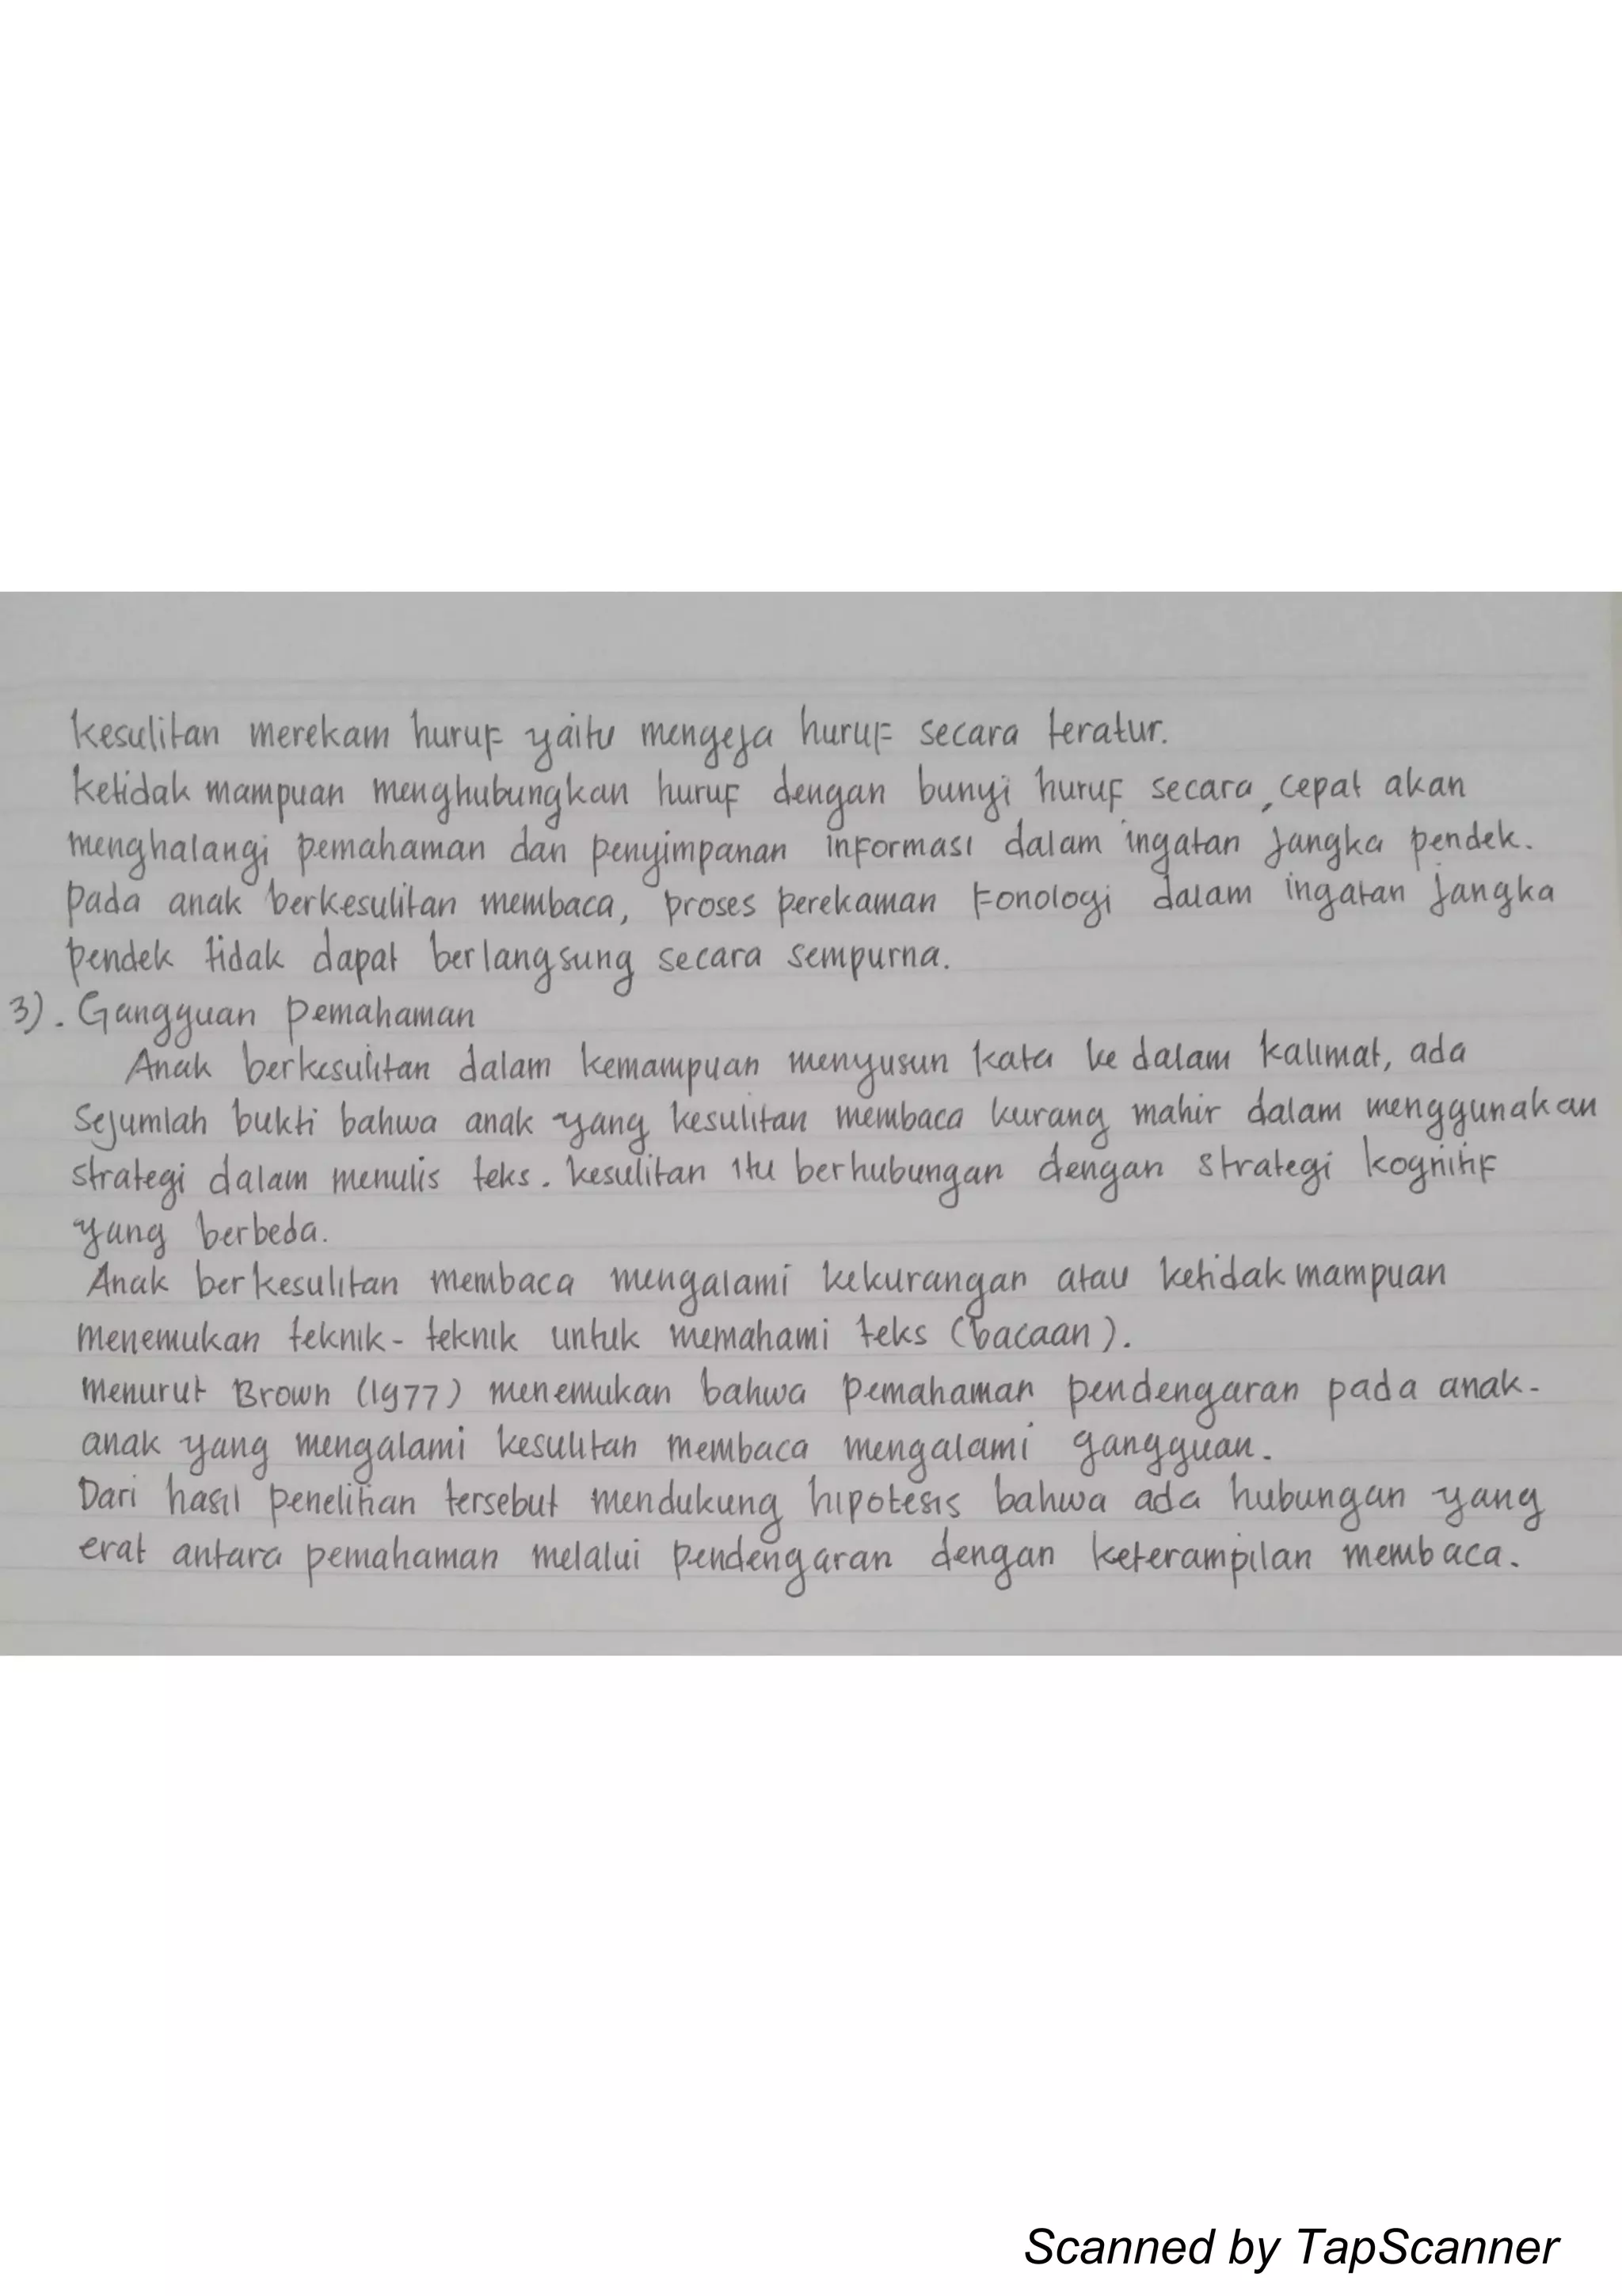 kesulitan merekam huruf yaitu mengeja huruf secara teratur.
ketidak mampuan menghubungkan huruf dengan bunyi huruf secara, cepat akan
menghalangi pemahaman dan penyimpanan informasi dalam ingatan jangka pendek.
pada anak berkesulitan membaca, proses perekaman fonologi dalam ingatan jangka
pendek tidak dapat berlangsung secara sempurna.
3). Gangguan pemahaman
Anak berkesulitan dalam kemampuan menyusun kata ke dalam kalimat, ada
Sejumlah bukti bahwa anak yang kesulitan membaca kurang mahir dalam menggunakan
strategi dalam menulis teks. kesulitan itu berhubungan dengan strategi kognitif
yang berbeda.
Anak berkesulitan membaca mengalami kekurangan atau ketidak mampuan
menemukan teknik-teknik untuk memahami teks (bacaan).
Menurut Brown (1977) menemukan bahwa pemahaman pendengaran pada anak-
anak yang mengalami kesulitan membaca mengalami gangguan.
Dari hasil penelitian tersebut mendukung hipotesis bahwa ada hubungan yang
erat antara pemahaman melalui pendengaran dengan keterampilan membaca.
Scanned by TapScanner